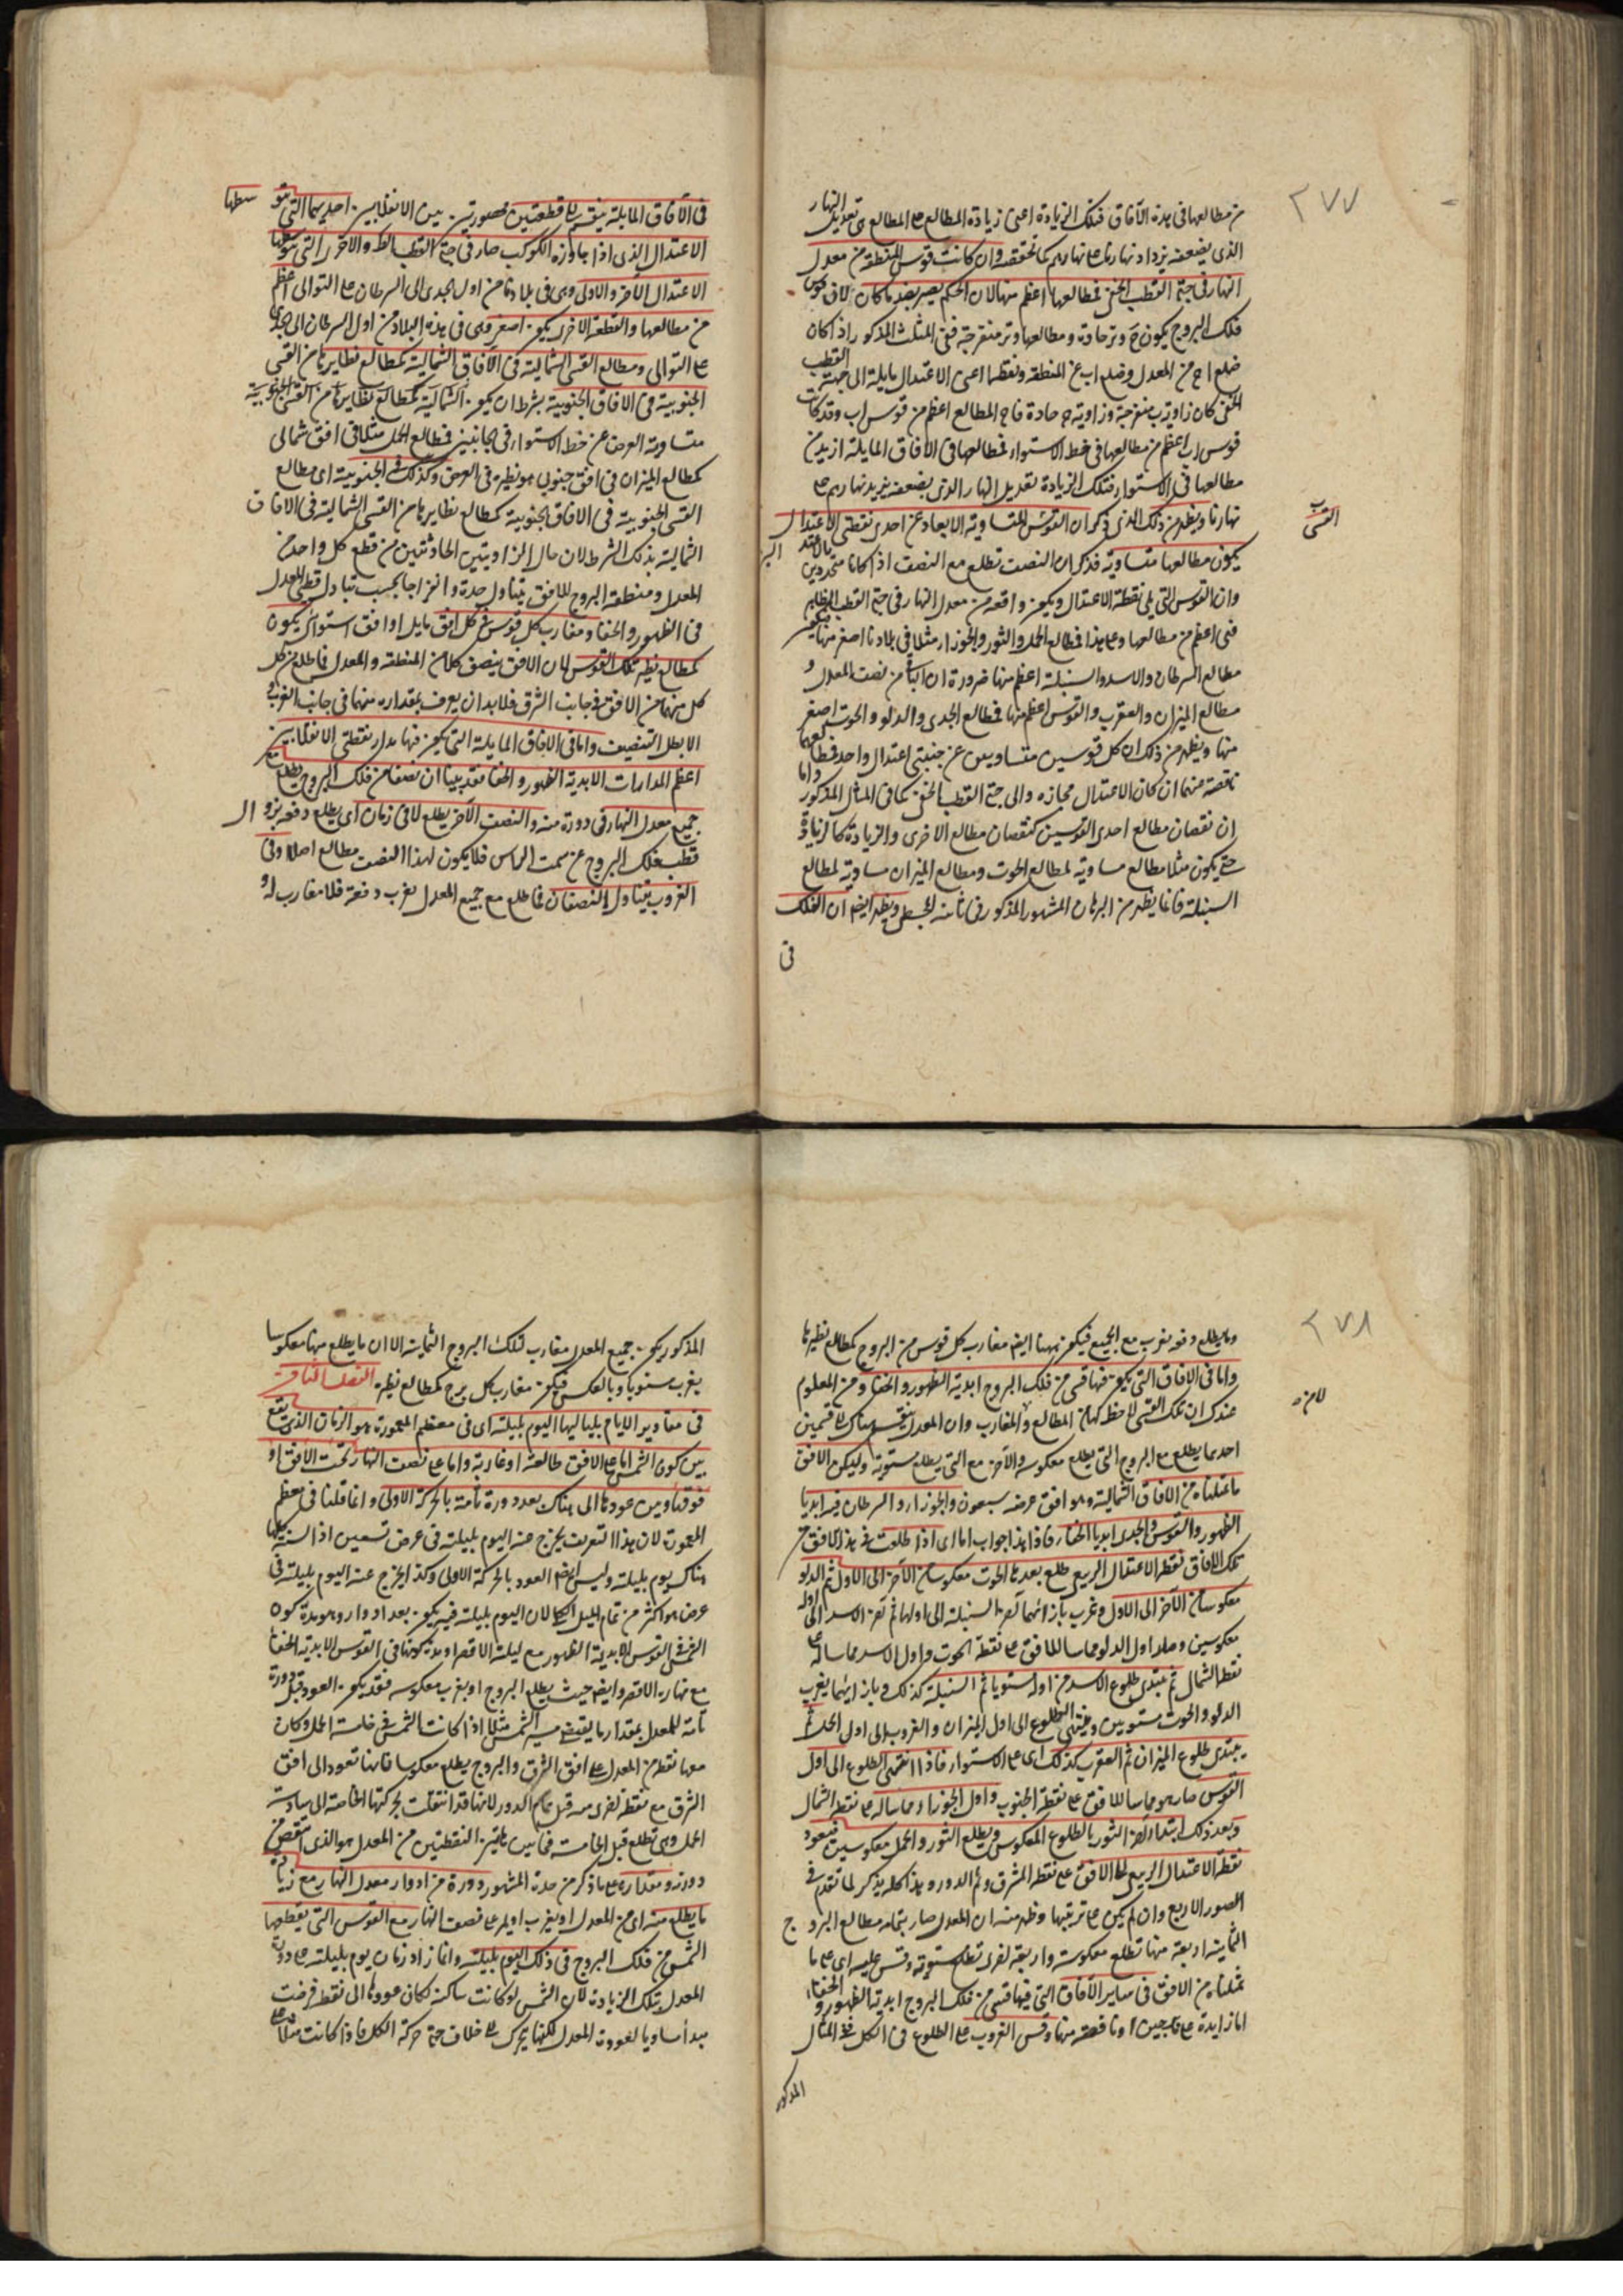 ٢٧٧
من مطالعها فى هذه الآفاق فتلك الزيادة اعنى زيادة المطالع على المطالع هى تعديل النهار
الذى بضعفه يزداد نهارنا على نهارهم كما تحققته وان كانت قوس المنطقة من معدل
النهار فى جهة القطب الخفى فمطالعها اعظم منها لان الحكم يصير بضد ما كان لان قوس
فلك البروج يكون ح وتر حادة ومطالعها وتر منفرجة ففى المثلث المذكور اذا كان
ضلع اح من المعدل وضلع اب من المنطقة ونقطة ا اعنى الاعتدال مايلة الى جهة القطب
الخفى كان زاوية ب منفرجة وزاوية ح حادة فاح المطالع اعظم من قوس اب وقد كانت
قوس اب اعظم من مطالعها فى خط الاستواء فمطالعها فى الآفاق المايلة ازيد من
مطالعها فى الاستواء فتلك الزيادة تعديل النهار الذى بضعفه يزيد نهارهم على
نهارنا ويظهر من ذلك الذى ذكر ان القوس المتساوية الابعاد عن احدى نقطتى الاعتدال
القسى
يكون مطالعها متساوية فذكر ان النصف يطلع مع النصف اذا كانا محدودين بالاعتد
وان القوس التى يلى نقطة الاعتدال ويكون واقعة من معدل النهار فى جهة القطب الظاهر
فهى اعظم من مطالعها وعلى هذا فمطالع الحمل والثور والجوزاء مثلا فى بلادنا اصغر منها فيكون
مطالع السرطان والاسد والسنبلة اعظم منها ضرورة ان الباقى من نصف المعدل و
مطالع الميزان والعقرب والقوس اعظم منها فمطالع الجدى والدلو والحوت اصغر
منها ويظهر من ذلك ان كل قوسين متساويين عن جنبتى اعتدال واحد فمطالعهما
ناقصة عنهما ان كان الاعتدال مجازه والى جهة القطب الخفى كما فى المثال المذكور واما
ان نقصان مطالع احدى القوسين كنقصان مطالع الاخرى والزيادة كالزيادة
حتى يكون مثلا مطالع مساوية لمطالع الحوت ومطالع الميزان مساوية لمطالع
السنبلة فانما يظهر من البرهان المشهور المذكور فى ثامنة المجسطى ويظهر ايضا ان الفلك
فى
فى الآفاق المايلة ينقسم الى قطعتين محصورتين بين الانقلابين احديهما التى يتو سطها
الاعتدال الذى اذا جاوزه الكوكب صار فى جهة القطب الظ والاخرى التى يتوسطها
الاعتدال الآخر والاولى وهى فى بلادنا من اول الجدى الى السرطان على التوالى اعظم
من مطالعها والقطعة الاخرى يكون اصغر وهى فى هذه البلاد من اول السرطان الى الجدى
على التوالى ومطالع القسى الشمالية فى الآفاق الشمالية كمطالع نظايرها من القسى
الجنوبية فى الآفاق الجنوبية بشرط ان يكون الشمالية كمطالع نظايرها من القسى الجنوبية
متساوية العرض عن خط الاستواء فى الجانبين فمطالع الحمل مثلا فى افق شمالى
كمطالع الميزان فى افق جنوبى هو نظيره فى العرض وكذلك فى الجنوبية اى مطالع
القسى الجنوبية فى الآفاق الجنوبية كمطالع نظايرها من القسى الشمالية فى الآفاق
الشمالية بذلك الشرط لان حال الزاويتين الحادثتين من قطع كل واحد من
المعدل ومنطقة البروج للافق يتناول حدة وانفراجا بحسب تبادل قطبى المعدل
فى الظهور والخفاء ومغارب كل قوس فى كل افق مايل او افق استوائى يكون
كمطالع نظير تلك القوس لان الافق ينصف كلا من المنطقة والمعدل فما طلع من كل
كل منهما من الافق فى جانب الشرق فلا بد ان يغرب بمقداره منهما فى جانب الغرب و
الا بطل التنصيف واما فى الآفاق المايلة التى يكون فيها مدار نقطتى الانقلابين
اعظم المدارات الابدية الظهور والخفاء فقد بينا ان نصفا من فلك البروج يطلع مع
جميع معدل النهار فى دورة منه والنصف الآخر يطلع لا فى زمان اى يطلع دفعة بزوال
قطب فلك البروج عن سمت الراس فلا يكون لهذا النصف مطالع اصلا وفى
الغروب يتبادل النصفان فما طلع مع جميع المعدل يغرب دفعة فلا مغارب له و
٢٧٨
وما يطلع دفعة يغرب مع الجميع فيكون ههنا ايضا مغارب كل قوس من البروج كمطالع نظيرها
واما فى الآفاق التى يكون فيها قسى من فلك البروج ابدية الظهور والخفاء ومن المعلوم
عندك ان تلك القسى لا حظ لها من المطالع والمغارب وان المعدل ينقسم هناك الى قسمين
احدهما يطلع مع البروج التى يطلع معكوسة والآخر مع التى يطلع مستوية وليكن الافق
ما مثلناه من الآفاق الشمالية وهو افق عرضه سبعون والجوزاء والسرطان فيه ابديا
الظهور والقوس والجدى ابديا الخفاء فاذا هذا جواب اما اى اذا طلعت فى هذا الافق من
تلك الآفاق نقطة الاعتدال الربيعى طلع بعدها الحوت معكوسا من الآخر الى الاول ثم الدلو
معكوسا من الآخر الى الاول وغرب بازائهما آخر السنبلة الى اولها ثم آخر الاسد الى اوله
معكوسين وصار اول الدلو مماسا للافق على نقطة الجنوب واول الاسد مماسا له على
نقطة الشمال ثم يبتدى طلوع الاسد من اوله مستويا ثم السنبلة كذلك وبازائهما يغرب
الدلو والحوت مستويين وينتهى الطلوع الى اول الميزان والغروب الى اول الحمل ثم
يبتدى طلوع الميزان ثم العقرب كذلك اى على الاستواء فاذا انتهى الطلوع الى اول
القوس صار هو مماسا للافق على نقطة الجنوب واول الجوزاء مماسا له على نقطة الشمال
وبعد ذلك ابتدا آخر الثور بالطلوع المعكوس ويطلع الثور والحمل معكوسين فيعود
نقطة الاعتدال الربيعى الى الافق على نقطة المشرق وتم الدور وهذا كله يذكر لما تقدم فى
الصور الاربع وان لم يكن على ترتيبها وظهر منه ان المعدل صار بتمامه مطالع البروج
الثمانية اربعة منها تطلع معكوسة واربعة اخرى تطلع مستوية وقس عليه اى على ما
مثلناه من الافق فى ساير الآفاق التى فيها قسى من فلك البروج ابدية الظهور والخفاء
اما زايدة على برجين او ناقصة منهما وقس الغروب على الطلوع فى الكل ففى المثال
المذكور
المذكور يكون جميع المعدل مغارب لتلك البروج الثمانية الا ان ما يطلع منها معكوسا
يغرب مستويا وبالعكس فيكون مغارب كل برج كمطالع نظيره
فى مقادير الايام بلياليها اليوم بليلته اى فى معظم المعمورة هو الزمان الذى يقع
بين كون الشمس اما على الافق طالعة او غاربة واما على نصف النهار تحت الافق او
فوقه وبين عودها الى هناك بعد دورة تامة بالحركة الاولى وانما قلنا فى معظم
المعمورة لان هذا التعريف يخرج عنه اليوم بليلته فى عرض تسعين اذ السنة كلها
هناك يوم بليلته وليس ايضا العود بالحركة الاولى وكذا يخرج عنه اليوم بليلته فى
عرض هو اكثر من تمام الميل الكلى لان اليوم بليلته فيه يكون بعد ادوار وهو مدة كون
الشمس فى القوس الابدية الظهور مع ليلة الاقصر او مدة كونها فى القوس الابدية الخفاء
مع نهاره الاقصر وايضا حيث يطلع البروج او يغرب معكوسة فقد يكون العود قبل دورة
تامة للمعدل بمقدار ما يقتضيه سير الشمس مثلا اذا كانت الشمس فى خامسة الحمل وكان
معها نقطة من المعدل على افق الشرق والبروج يطلع معكوسا فانها تعود الى افق
الشرق مع نقطة اخرى منه قبل تمام الدور لانها قد انتقلت بحركتها الخاصة الى سادسة
الحمل وهى تطلع قبل الخامسة فما بين هاتين النقطتين من المعدل هو الذى انتقص من
دورته ومقداره على ما ذكر من حده المشهور دورة من ادوار معدل النهار مع زيادة
ما يطلع منه اى من المعدل او يغرب او يمر على نصف النهار مع القوس التى يقطعها
الشمس من فلك البروج فى ذلك اليوم بليلته وانما زاد زمان يوم بليلته على دورة
المعدل بتلك الزيادة لان الشمس لو كانت ساكنة لكان عودها الى نقطة فرضت
مبدأ مساويا لعودة المعدل لكنها يتحرك الى خلاف جهة حركة الكل فاذا كانت مثلا على